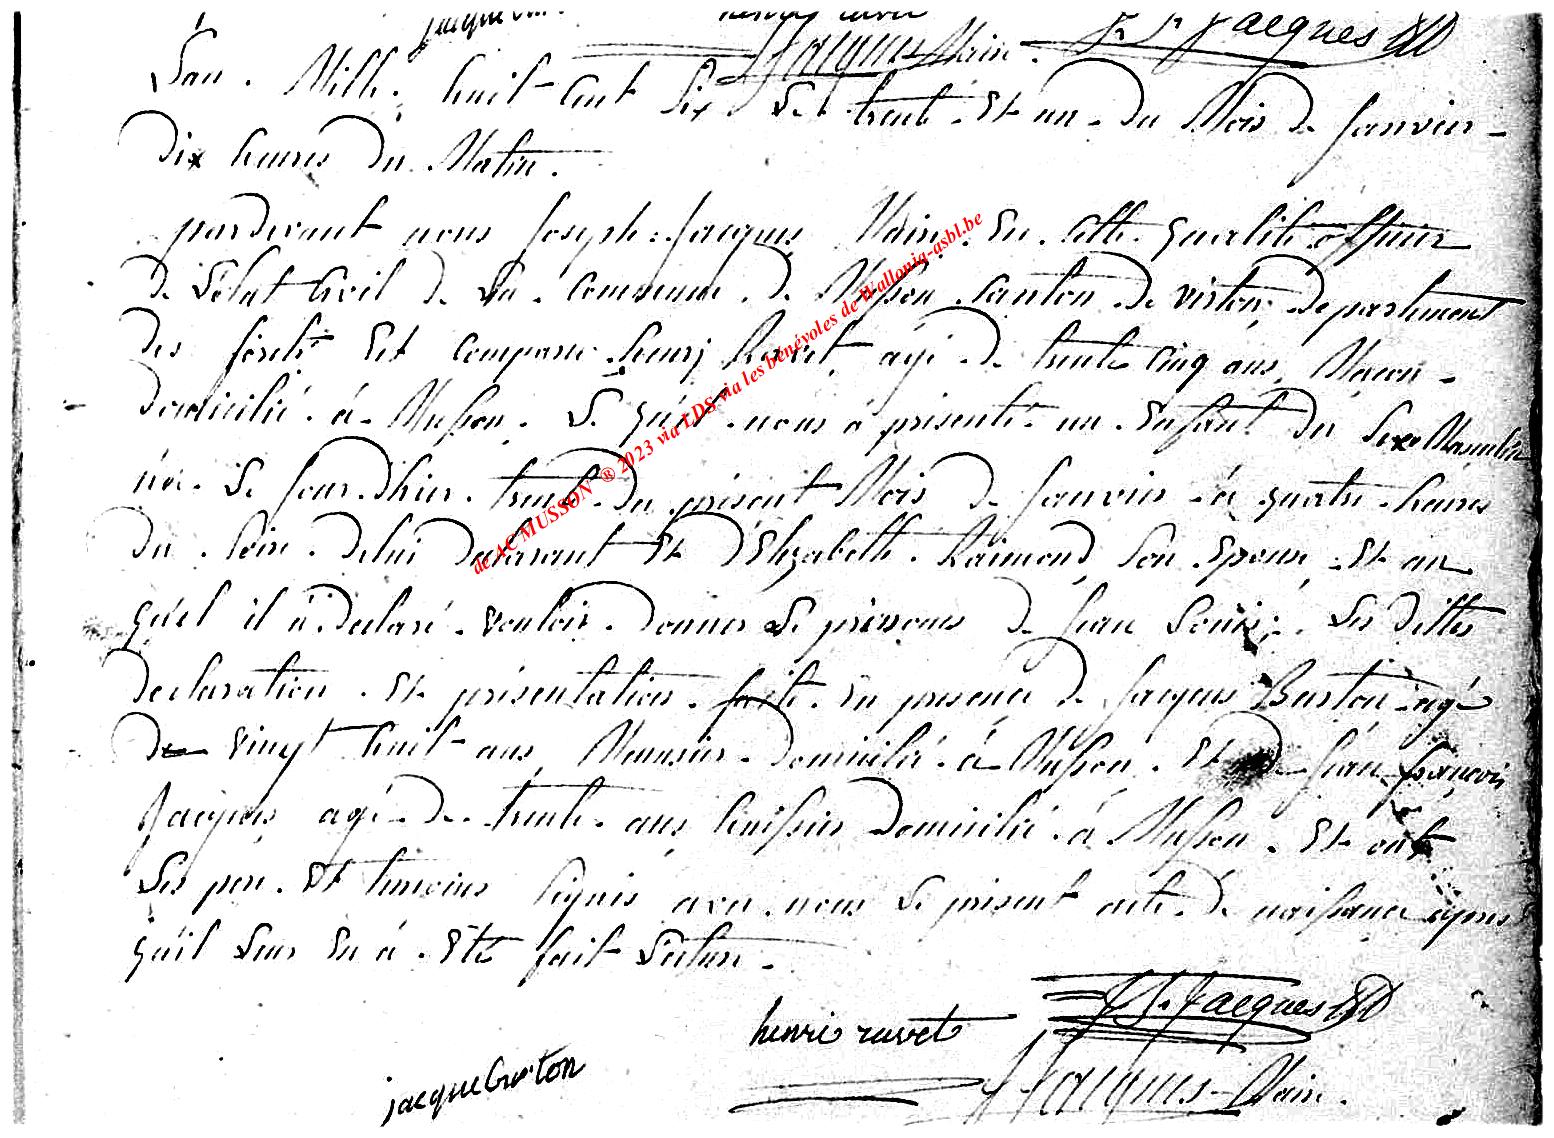 jacque
henri ravet
Jacques Maire. J. f. Jacques
L'an. Mille. huit Cent Six Le trente Et un du Mois de janvier
Dix heures du Matin.
pardevant nous joseph jacques Maire. En. Cette qualité officier
de L'état Civil de La. Commune de Musson Canton de virton, departement
des forêts Est comparu henry Ravet, agé de trente cinq ans, Macon
domicilié à Musson, Le quel nous à présenté un Enfant du Sexe Masculin
né Le jour d'hier trente du présent Mois de janvier à quatre heures
du Soir de lui declarant Et d'Elizabette Raimond, Son Epouse, Et au
quel il à declaré vouloir donner Le prenoms de jean Louis; Les dittes
declaration Et présentation faite En presence de jacques Burton agé
de vingt huit ans Domicilié à Musson, Et de jean françois
Jacques agé de trente ans, huissier Domicilié à Musson. Et ont
Les pere Et temoins Signés avec nous Le présent acte de naissance après
qu'il Leur En à Eté fait Lecture
henri ravet
J. f. Jacques
jacque burton
Jacques Maire.
de AC MUSSON ® 2023 via LDS via les bénévoles de Wallonia-asbl.be